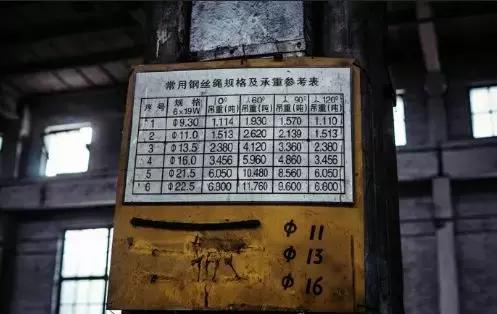 常用钢丝绳规格及承重参考表
序号 规格 6×19W 0° 吊重(吨) 人60° 吊重(吨) 人90° 吊重(吨) 人120° 吊重(吨)
1 Φ9.30 1.114 1.930 1.570 1.110
2 Φ11.0 1.513 2.620 2.139 1.513
3 Φ13.5 2.380 4.120 3.360 2.380
4 Φ16.0 3.456 5.960 4.860 3.456
5 Φ21.5 6.050 10.480 8.560 6.050
6 Φ22.5 6.900 11.760 9.600 6.800
Φ 11
Φ 13
Φ 16